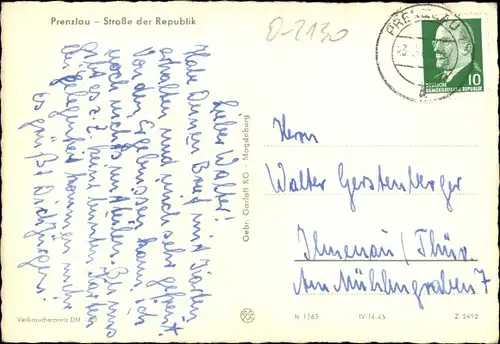 Prenzlau – Straße der Republik
D-2130
PRENZLAU
10
DEUTSCHE
DEMOKRATISCHE REPUBLIK
Lieber Walter!
Habe Deinen Brief mit Karten
erhalten und mich sehr gefreut.
Von den Ergebnissen kann ich
noch nichts mitteilen. Bei uns
gibt es z. Z. keine bunten Karten
bei Gelegenheit kommen mehr
Es grüßt Dich Jürgen!
Gebr. Garloff KG · Magdeburg
Herrn
Walter Gerstenberger
Ilmenau/Thür.
Am Mühlgraben 7
Verbraucherpreis DM
N 1/63 IV-14-45 Z 2692